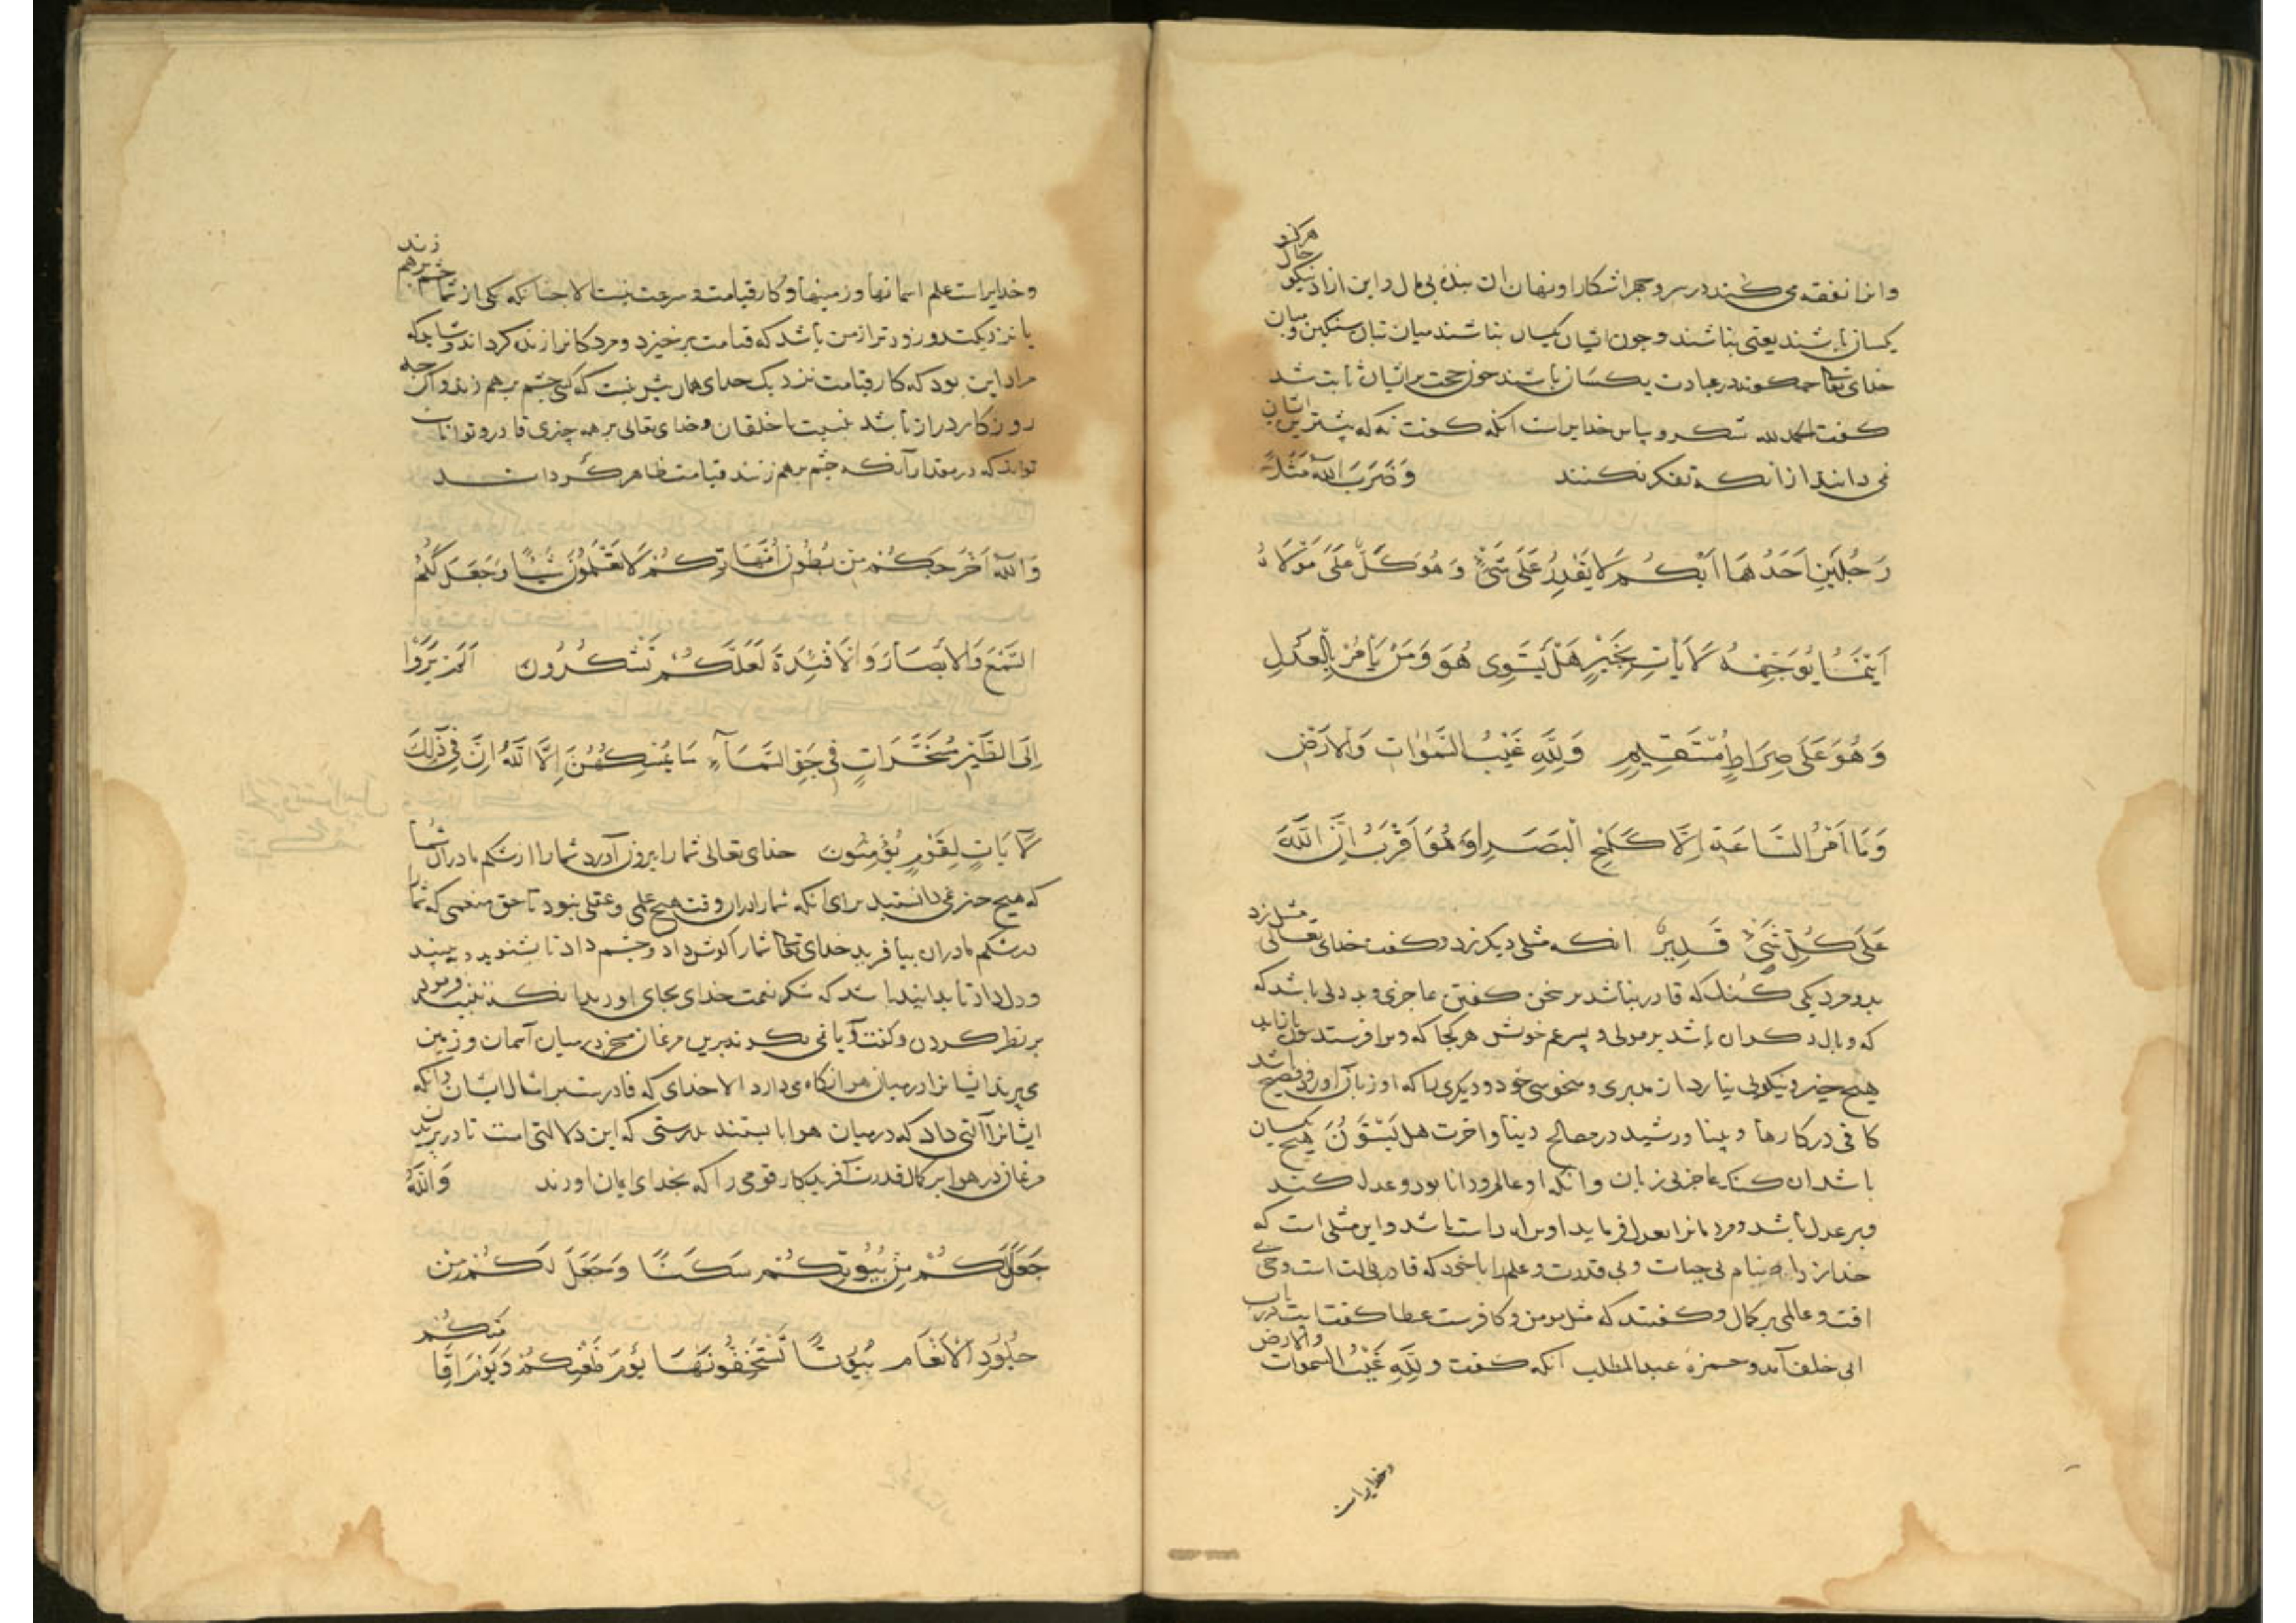 وانرا نفقه می‌کند در سر و جهر اشکارا و نهان ان بنده بی مال و این ازاد نیکو حال هرگز
یکسان باشند یعنی نباشند و چون ایشان یکسان نباشند میان بتان سنگین و میان
خدای تعالی چه گونه در عبادت یکسان باشند چون حجت برایشان ثابت شد
کفت الحمد لله شکر و سپاس خدایراست انکه کفت نه که بیشترین ایشان
نمی دانند از انکه تفکر نکنند وَضَرَبَ اللّٰهُ مَثَلًا
رَجُلَیْنِ اَحَدُهُمَا اَبْکَمُ لَا یَقْدِرُ عَلٰی شَیْءٍ وَهُوَ کَلٌّ عَلٰی مَوْلَاهُ
اَیْنَمَا یُوَجِّهْهُ لَا یَأْتِ بِخَیْرٍ هَلْ یَسْتَوِی هُوَ وَمَنْ یَأْمُرُ بِالْعَدْلِ
وَهُوَ عَلٰی صِرَاطٍ مُسْتَقِیمٍ وَلِلّٰهِ غَیْبُ السَّمٰوَاتِ وَالْاَرْضِ
وَمَا اَمْرُ السَّاعَةِ اِلَّا کَلَمْحِ الْبَصَرِ اَوْ هُوَ اَقْرَبُ اِنَّ اللّٰهَ
عَلٰی کُلِّ شَیْءٍ قَدِیرٌ انکه مثلی دیکر زد و کفت خدای تعالی مثل زد
بدو مرد یکی کنک که قادر نباشد بر سخن کفتن عاجزی و بد دلی باشد که
که وبال و کران باشد بر مولی و پسر عم خویش هر کجا که ویرا فرستد
هیچ چیز و نیکویی نیارد از مدبری و منحوسی خود و دیکری را که او زبان اور و فصیح باشد
کافی در کارها و بینا و رشید در مصالح دنیا و اخرت هل یستوون هیچ یکسان
باشد ان کنک عاجز بی زبان وانکه او عالم و دانا بود و عدل کند
وبر عدل باشد و مردمانرا بعدل فرماید او بر راه راست باشد و این مثلی است که
خدا زد اصنام بی حیات و بی قدرت و علم را با خود که قادر بی الت است و حی بی
افت و عالمی بر کمال و کفتند که مثل مومن و کافرست عطا کفت ایت در باب
ابی خلف آمد و حمزهٔ عبد المطلب انکه کفت وَلِلّٰهِ غَیْبُ السَّمٰوَات والارض
وخدایراست
وخدایراست علم اسمانها و زمینها و کار قیامت و سرعت نیست الا چنانکه یکی از شما چشم برهم زند
یا نزدیکتر و زودتر از من باشد که قیامت برخیزد و مردکانرا زنده کرداند و شاید که
مراد این بود که کار قیامت نزدیک خدای همان پیش نیست که کسی چشم بر هم زند و اکر چه
روزکار دراز باشد نسبت با خلقان و خدای تعالی بر همه چیزی قادر و توانا
تواند که در مقدار آنکه چشم بر هم زنند قیامت ظاهر کرداند
وَاللّٰهُ اَخْرَجَکُمْ مِنْ بُطُونِ اُمَّهَاتِکُمْ لَا تَعْلَمُونَ شَیْئًا وَجَعَلَ لَکُمُ
السَّمْعَ وَالْاَبْصَارَ وَالْاَفْئِدَةَ لَعَلَّکُمْ تَشْکُرُونَ اَلَمْ یَرَوْا
اِلَی الطَّیْرِ مُسَخَّرَاتٍ فِی جَوِّ السَّمَاءِ مَا یُمْسِکُهُنَّ اِلَّا اللّٰهُ اِنَّ فِی ذٰلِکَ
لَآیَاتٍ لِقَوْمٍ یُؤْمِنُونَ خدای تعالی شما را بیرون آورد شما را از شکم مادران شما
که هیچ چیز نمی دانستید برای انکه شما را دران وقت هیچ علمی و عقلی نبود تا حق منعمی که شما را
در شکم مادران بیافرید خدای تعالی شما را کوش داد و چشم داد تا بشنوید و ببینید
و دل داد تا بدانید باشد که شکر نعمت خدای بجای اورید انکه تنبیه فرمود
بر نظر کردن و کفت آیا نمی نکرند برین مرغان مسخر در میان آسمان و زمین
می‌پرند ایشانرا در میان هوا نکاه می دارد الا خدای که قادرست بر امثال ایشان و انکه
ایشانرا آلتی داد که در میان هوا بایستند بدرستی که این دلالتی است تا در پریدن
مرغان در هوا بر کمال قدرت آفریدکار قومی را که بخدای ایمان اورند وَاللّٰهُ
جَعَلَ لَکُمْ مِنْ بُیُوتِکُمْ سَکَنًا وَجَعَلَ لَکُمْ مِنْ
جُلُودِ الْاَنْعَامِ بُیُوتًا تَسْتَخِفُّونَهَا یَوْمَ ظَعْنِکُمْ وَیَوْمَ اِقَامَتِکُمْ